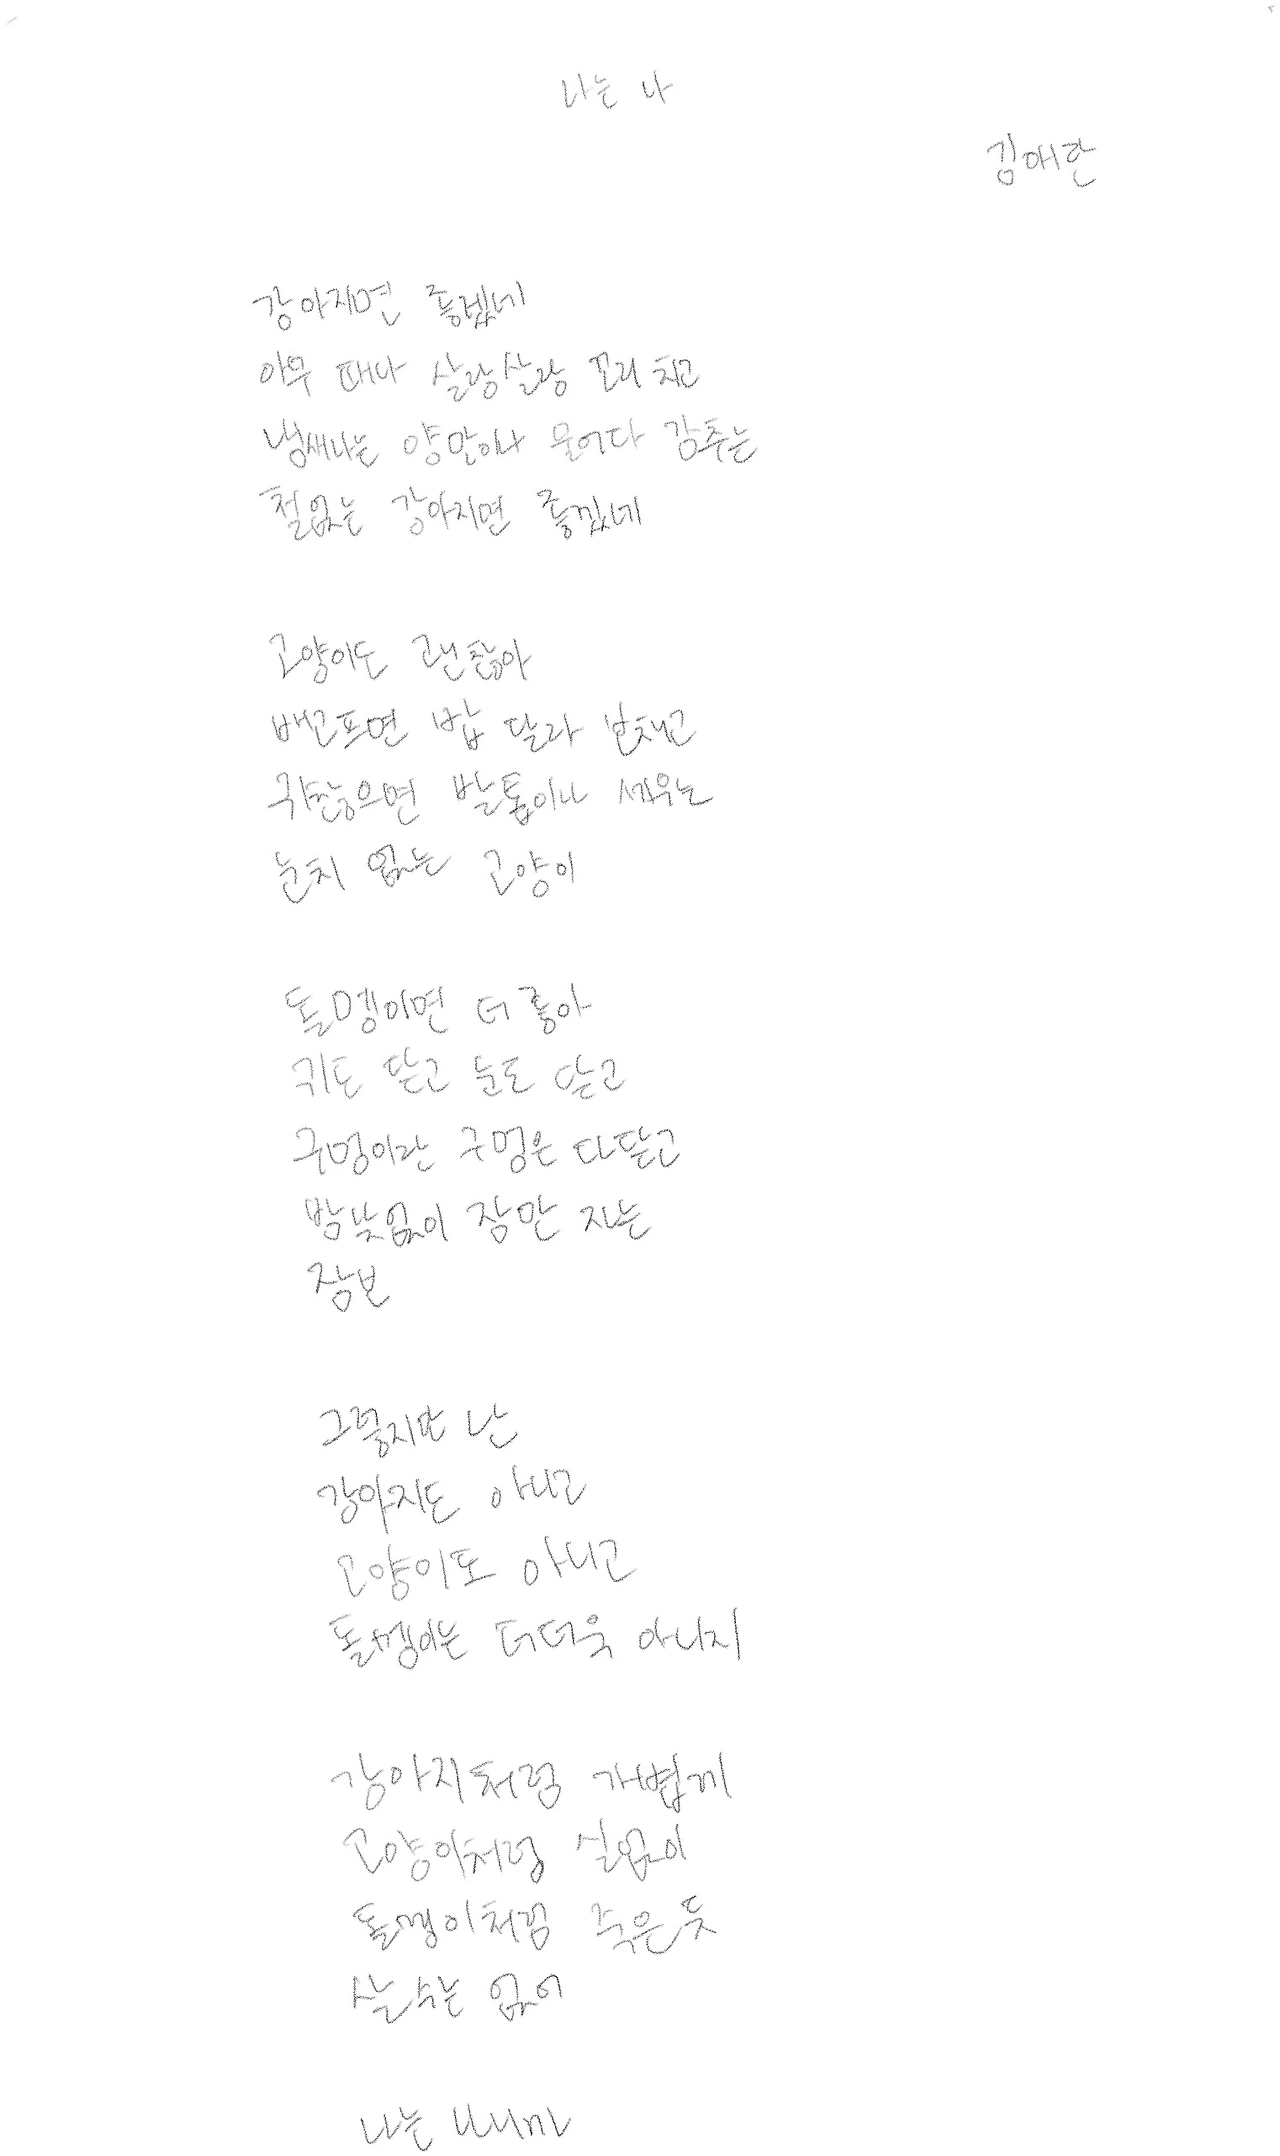 나는 나
김애란
강아지면 좋겠네
아무 때나 살랑살랑 꼬리 치고
냄새나는 양말이나 물어다 감추는
철없는 강아지면 좋겠네
고양이도 괜찮아
배고프면 밥 달라 보채고
귀찮으면 발톱이나 세우는
눈치 없는 고양이
돌멩이면 더 좋아
귀도 닫고 눈도 닫고
구멍이란 구멍은 다 닫고
밤낮없이 잠만 자는
잠보
그렇지만 난
강아지도 아니고
고양이도 아니고
돌멩이는 더더욱 아니지
강아지처럼 가볍게
고양이처럼 실없이
돌멩이처럼 죽은 듯
살 수는 없어
나는 나니까